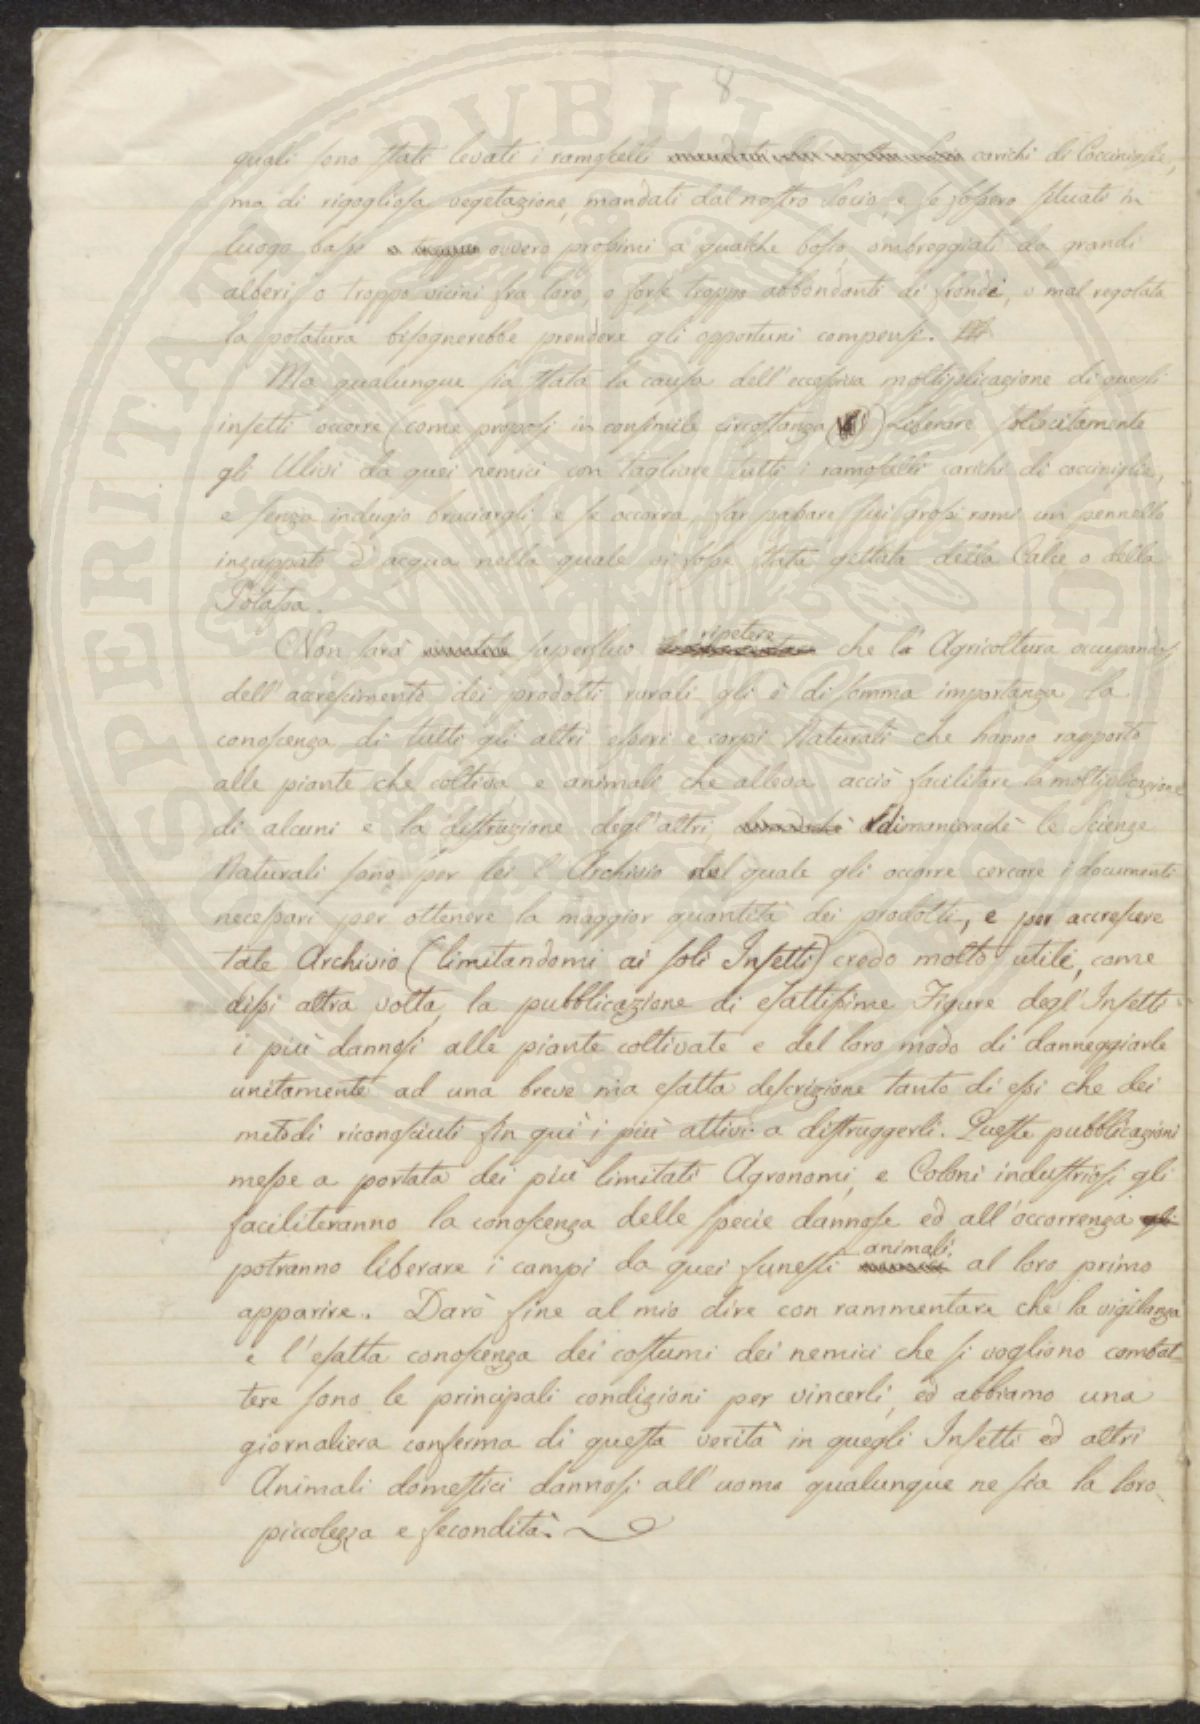 8
quali sono stati levati i ramoscelli carichi di Cocciniglie,
ma di rigogliosa vegetazione, mandati dal nostro Socio, e se fossero situati in
luogo basso ovvero prossimi a qualche bosco, ombreggiati da grandi
alberi, o troppo vicini fra loro, o forse troppo abbondanti di frondi, o mal regolata
la potatura bisognerebbe prendere gli opportuni compensi.
Ma qualunque sia stata la causa dell'eccessiva moltiplicazione di quegli
insetti occorre (come proposi in consimile circostanza) Liberare sollecitamente
gli Ulivi da quei nemici con tagliare tutti i ramoscelli carichi di cocciniglie,
e senza indugio bruciargli e se occorra, far passare sui grossi rami un pennello
inzuppato d'acqua nella quale vi fosse stata gettata della Calce o della
Potassa.
Non sarà superfluo ripetere che la Agricoltura occupandosi
dell'accrescimento dei prodotti rurali gli è di somma importanza la
conoscenza di tutti gli altri esseri e corpi Naturali che hanno rapporto
alle piante che coltiva e animali che alleva acciò facilitare la moltiplicazione
di alcuni e la distruzione degl'altri, dimanierachè le Scienze
Naturali sono per lei l'Archivio nel quale gli occorre cercare i documenti
necessari per ottenere la maggior quantità dei prodotti, e per accrescere
tale Archivio (limitandomi ai soli Insetti) credo molto utile, come
dissi altra volta, la pubblicazione di esattissime Figure degl'Insetti
i più dannosi alle piante coltivate e del loro modo di danneggiarle
unitamente ad una breve ma esatta descrizione tanto di essi che dei
metodi riconosciuti fin qui i più attivi a distruggerli. Queste pubblicazioni
messe a portata dei più limitati Agronomi, e Coloni industriosi gli
faciliteranno la conoscenza delle specie dannose ed all'occorrenza gli
potranno liberare i campi da quei funesti animali, al loro primo
apparire. Darò fine al mio dire con rammentare che la vigilanza
e l'esatta conoscenza dei costumi dei nemici che si vogliono combat-
tere sono le principali condizioni per vincerli, ed abbiamo una
giornaliera conferma di questa verità in quegli Insetti ed altri
Animali domestici dannosi all'uomo qualunque ne sia la loro
piccolezza e fecondità.